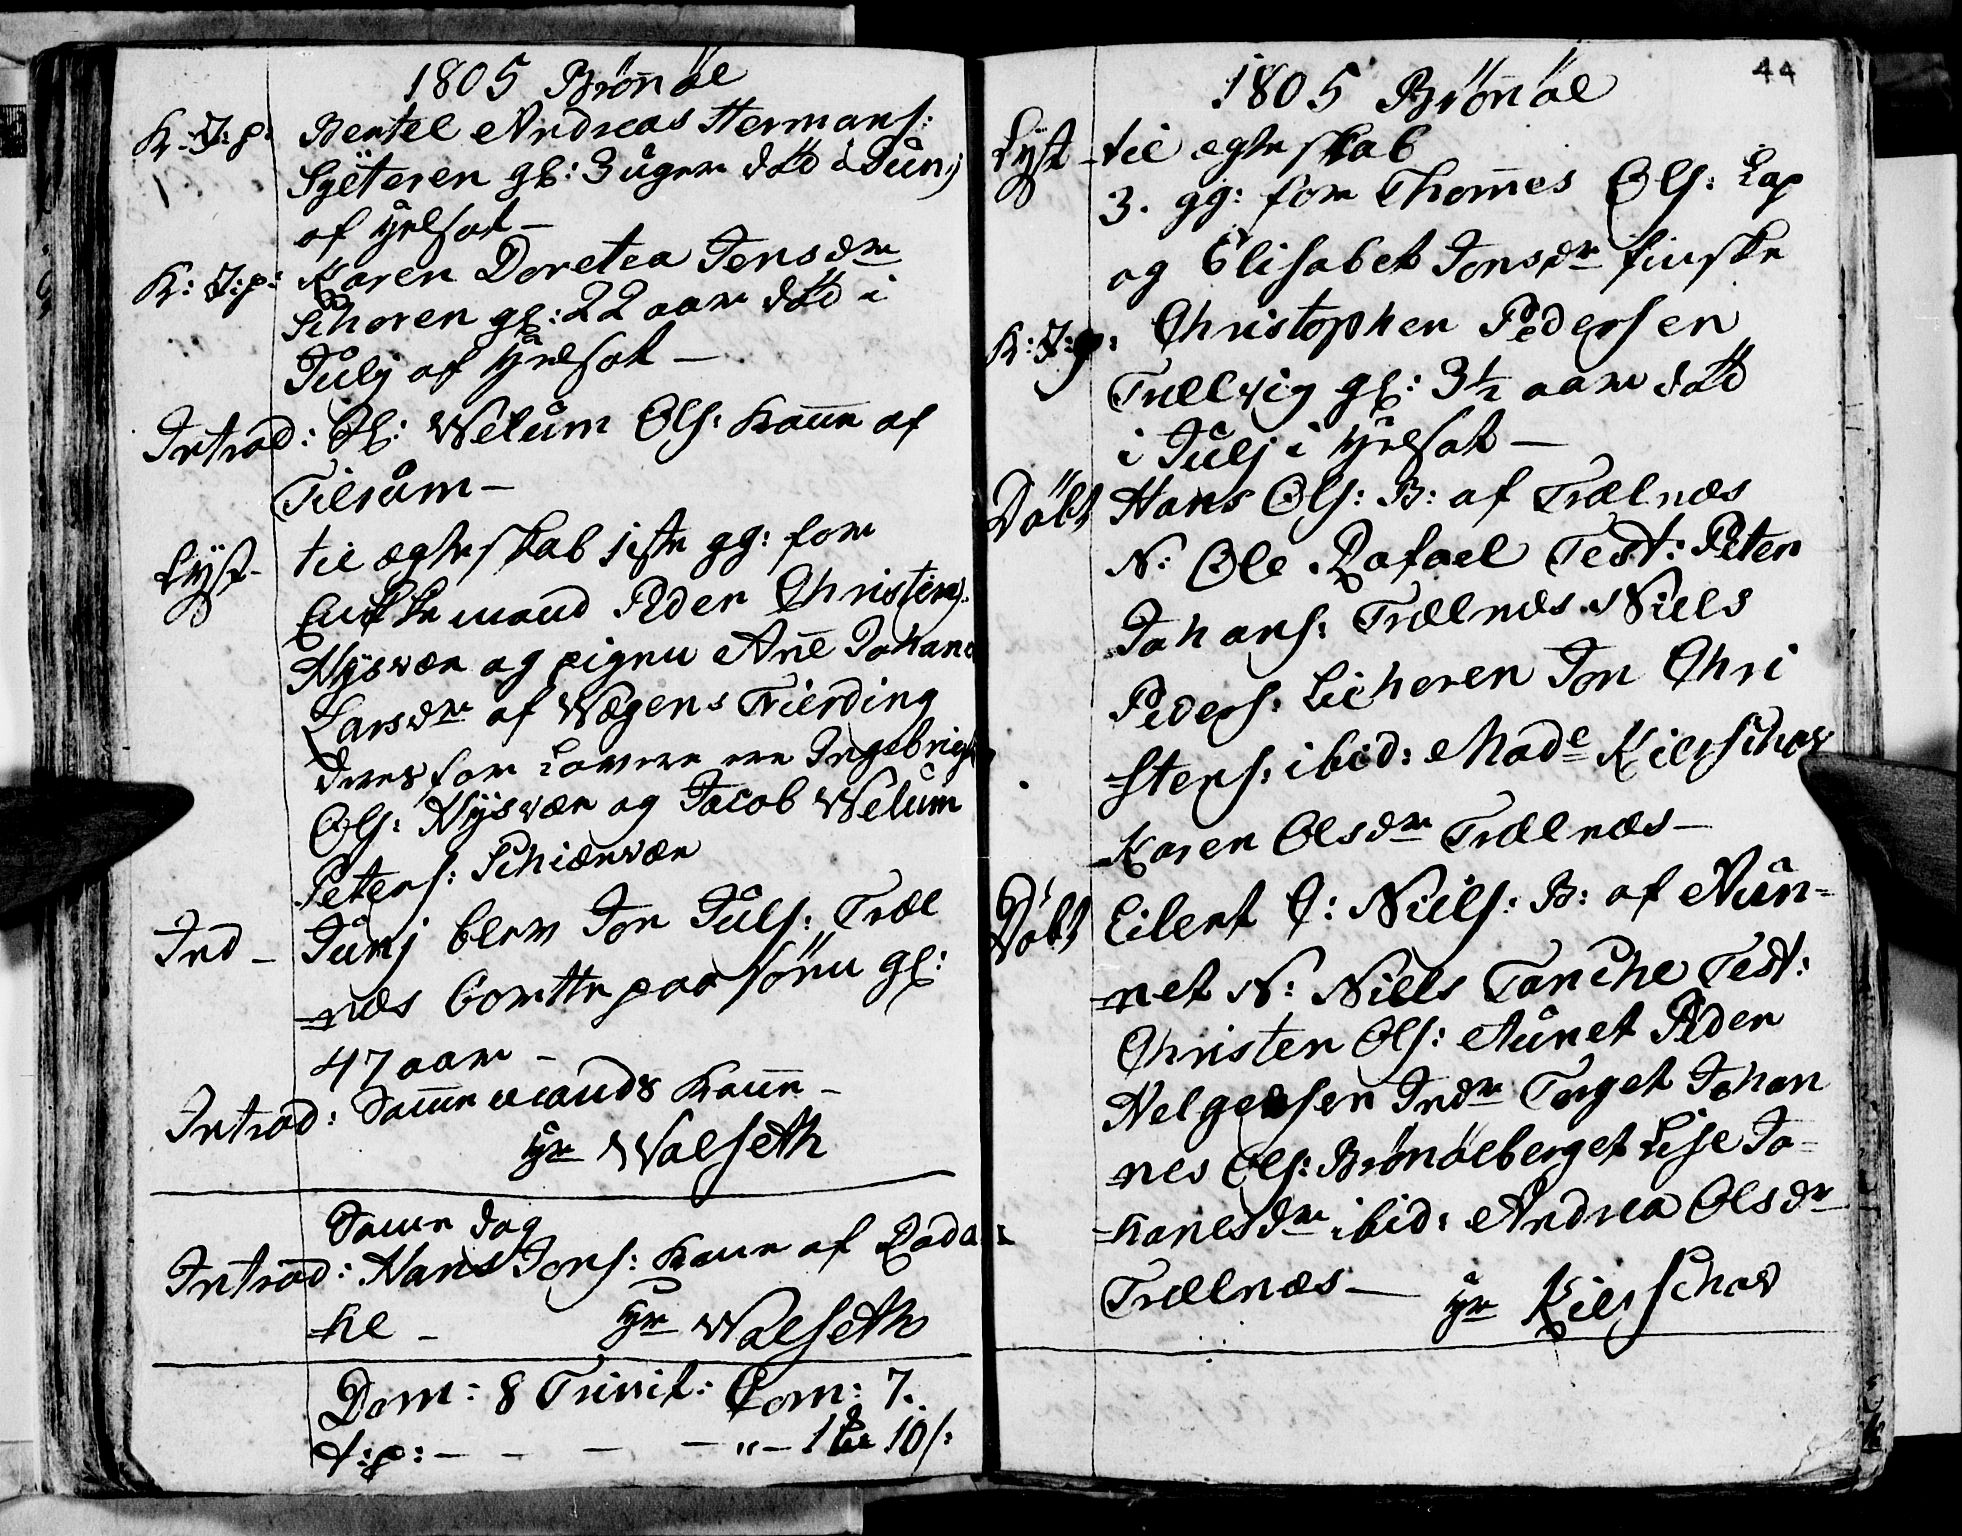 1805 Brönöe
K: J: p: Bentel Andreas Hermans:
Sylteren gl: 3 uger död i Junj
af Hilsot –
K: J: p: Karen Doretea Jensdr
Schoren gl: 22 aar död i
Julj af Hilsot –
Introd: Ol: Welum Ols: Kone af
Tilrum –
Lyst – til ægteskab siste gg: for
Enkkemand Peder Christens:
Hysvær og pigen Ane Johana
Larsdr af Wægens Fierding
derfor Lovere ere Ingebrigt
Ols: Hysvær og Jacob Welum
Peters: Schiærvær
Ind – Junj blev Jon Juls: Træl
=næs bortte paa söen gl:
47 aar –
Introd: Samme mands kone –
Hr Walseth
Same dag
Introd: Hans Jons: Kone af Rada=
=ke – Hr Walseth
Dom: 8 Trinit: Com: 7.
f: p: – – – – " – 1 10 s:
44
1805 Brönöe
Lyst – til ægteskab
3. gg: for Thomes Ols: Lap
og Elisabet Jonsdr finske
K: J: p: Christopher Pedersen
Trælvig gl: 3½ aar död
i Julj i Hilsot –
Döbt Hans Ols: B: af Trælnæs
N: Ole Rafael Test: Peter
Johans: Trælnæs Niels
Peders: Licheren Jon Chri
=stens: ibid: Made Kierschov
Karen Olsdr Trælnæs –
Döbt Eilert C: Niels: B: af Nun=
=net N: Niels Tanche Test:
Christen Ols: Aunet Peder
Helgesen Indr Torget Johan
nes Ols: Brönöeberget Lise Jo=
=hanesdr ibid: Andrea Olsdr
Trælnæs – Hr Kierschov